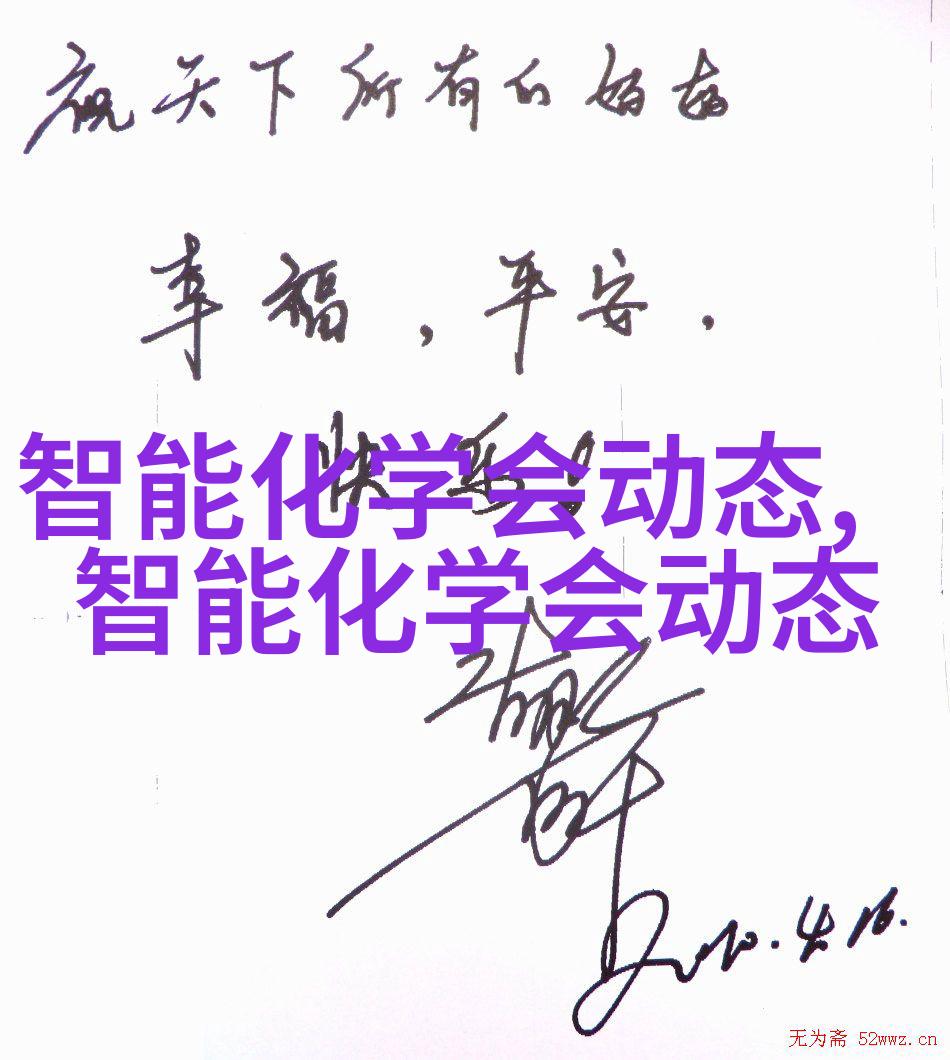 祝天下所有的妈妈
幸福，平安，
快乐！
智能化学会动态,
智能化学会动态
2010.4.16.
无为斋 52wwz.cn